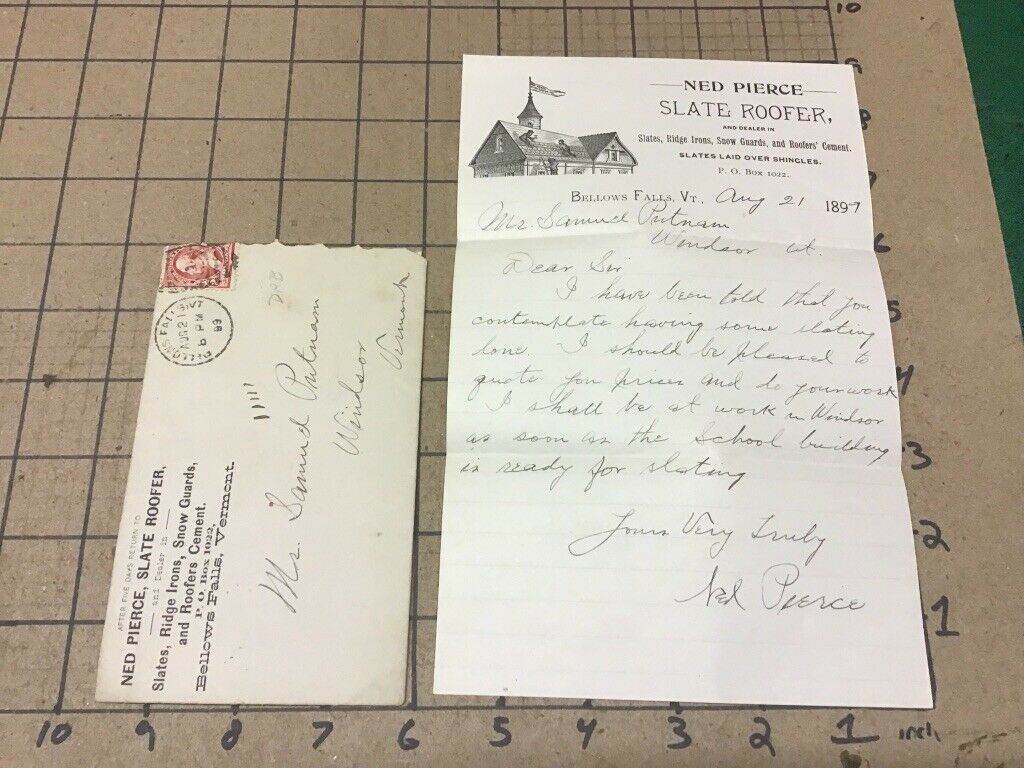 NED PIERCE
SLATE ROOFER,
AND DEALER IN
Slates, Ridge Irons, Snow Guards, and Roofers' Cement.
SLATES LAID OVER SHINGLES.
P. O. Box 1022.
BELLOWS FALLS, VT., Aug 21 1897
Mr. Samuel Putnam
Windsor Vt.
Dear Sir
I have been told that you
contemplate having some slating
done. I should be pleased to
quote you prices and do your work
I shall be at work in Windsor
as soon as the School building
is ready for slating
Yours Very Truly
Ned Pierce
AFTER FIVE DAYS RETURN TO
NED PIERCE, SLATE ROOFER,
and Dealer in
Slates, Ridge Irons, Snow Guards,
and Roofers' Cement.
P. O. Box 1022,
Bellows Falls, Vermont.
Mr. Samuel Putnam
Windsor
Vermont
AUG 21
6 PM
10
9
8
6
5
4
3
2
1
10 9 8 7 6 5 4 3 2 1 inch